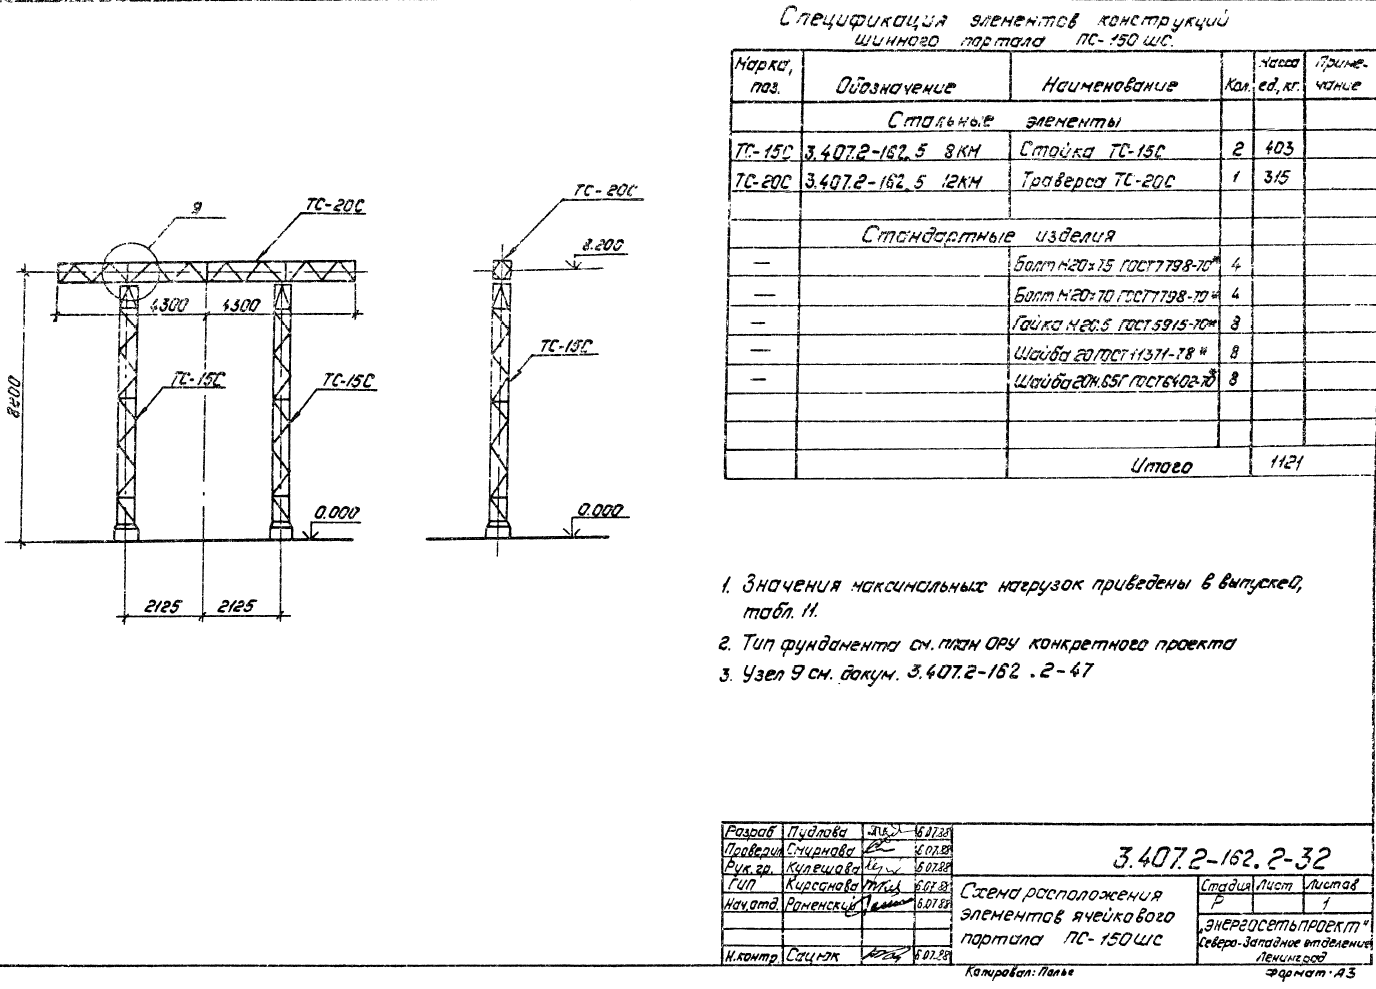 Спецификация элементов конструкций
шинного портала ПС-150 шс.
Марка, поз. Обозначение Наименование Кол. Масса ед, кг. Приме-чание
Стальные элементы
ТС-15С 3.407.2-162.5 8КМ Стойка ТС-15С 2 403
ТС-20С 3.407.2-162.5 12КМ Траверса ТС-20С 1 315
Стандартные изделия
— Болт М20×75 ГОСТ 7798-70* 4
— Болт М20×70 ГОСТ 7798-70* 4
— Гайка М20.5 ГОСТ 5915-70* 8
— Шайба 20 ГОСТ 11371-78* 8
— Шайба 20Н.65Г ГОСТ 6402-70* 8
Итого 1121
9
ТС-20С
4300 4300
ТС-15С
ТС-15С
8200
0.000
2125 2125
ТС-20С
8.200
ТС-15С
0.000
1. Значения максимальных нагрузок приведены в выпуске 0,
табл. 11.
2. Тип фундамента см. план ОРУ конкретного проекта
3. Узел 9 см. докум. 3.407.2-162.2-47
Разраб Пудлова 6.07.88
Проверил Смирнова 6.07.88
Рук. гр. Кулешова 6.07.88
ГИП Кирсанова 6.07.88
Нач.отд. Роменский 6.07.88
Н.контр. Сацюк 6.07.88
3.407.2-162.2-32
Схема расположения
элементов ячейкового
портала ПС-150шс
Стадия Лист Листов
Р 1
„Энергосетьпроект"
Северо-Западное отделение
Ленинград
Копировал:
Формат А3